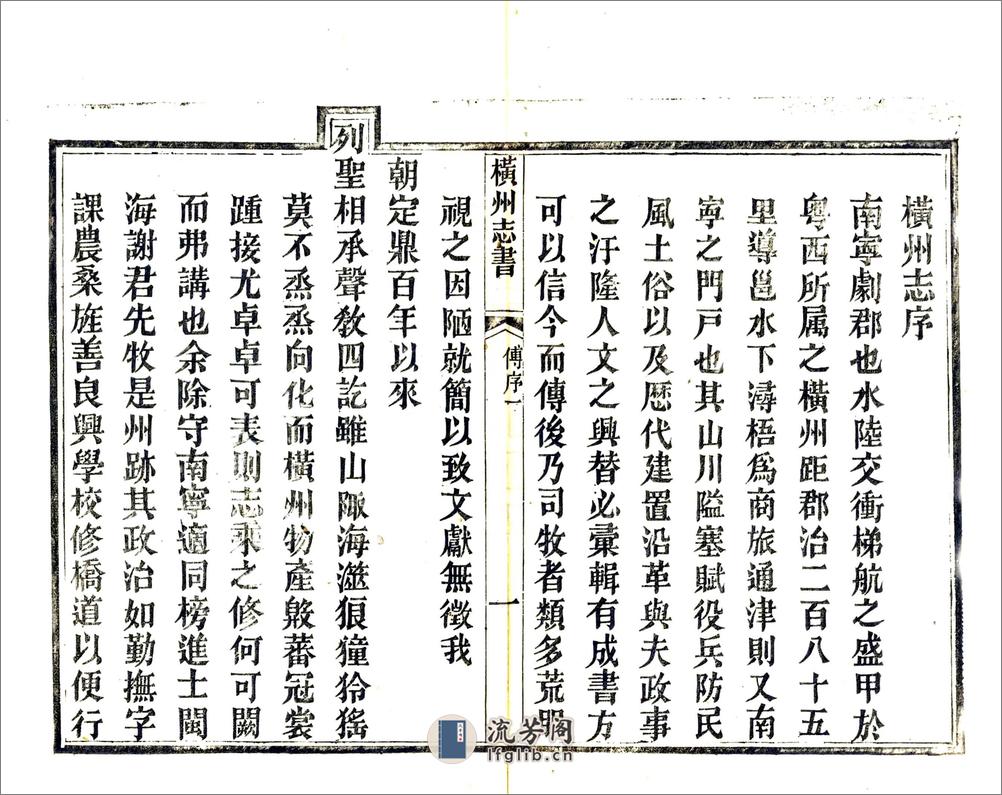 橫州志序
南寧劇郡也水陸交衝梯航之盛甲於
粤西所属之橫州距郡治二百八十五
里導邕水下潯梧爲商旅通津則又南
寧之門戶也其山川隘塞賦役兵防民
風土俗以及歷代建置沿革與夫政事
之汙隆人文之興替必彙輯有成書方
可以信今而傳後乃司牧者類多荒
橫州志書
傅序一
一
視之因陋就簡以致文獻無徵我
朝定鼎百年以來
列聖相承聲敎四訖雖山陬海澨狼獞狑猺
莫不烝烝向化而橫州物產殷蕃冠裳
踵接尤卓卓可表則志乘之修何可闕
而弗講也余除守南寧適同榜進士閩
海謝君先牧是州跡其政治如勤撫字
課農桑旌善良興學校修橋道以便行
流芳阁
lfglib.cn